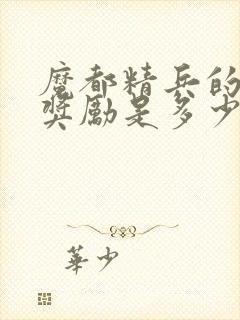 魔都精兵的
獎勵是多少
華少